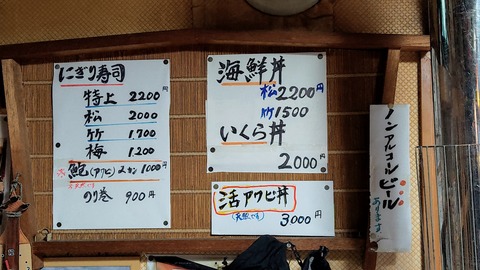 にぎり寿司
特上 2200円
松 2000
竹 1700
梅 1200
鮑(アワビ)2カン 1000円
のり巻 900円
海鮮丼
松2200円
竹1500
いくら丼
2000円
活アワビ丼
(天然です) 3000円
ノンアルコールビール
あります